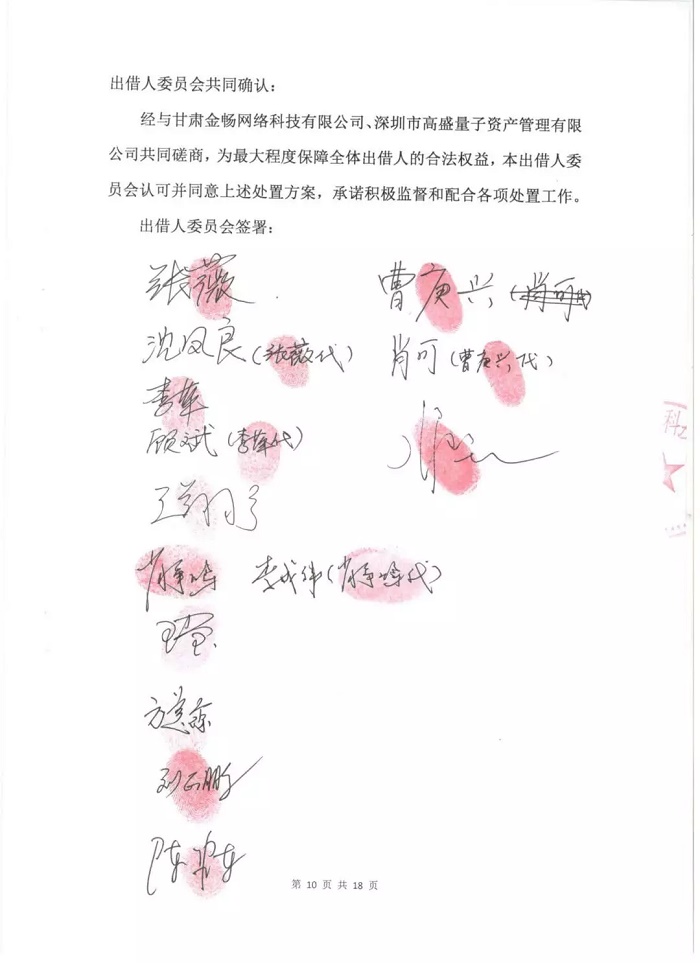 出借人委员会共同确认：
经与甘肃金畅网络科技有限公司、深圳市高盛量子资产管理有限
公司共同磋商，为最大程度保障全体出借人的合法权益，本出借人委
员会认可并同意上述处置方案，承诺积极监督和配合各项处置工作。
出借人委员会签署：
张薇
曹庚兴
沈凤良（张薇代）
肖可（曹庚兴代）
李苹
顾文斌（李苹代）
李成伟
刘正鹏
陈
第 10 页 共 18 页
科